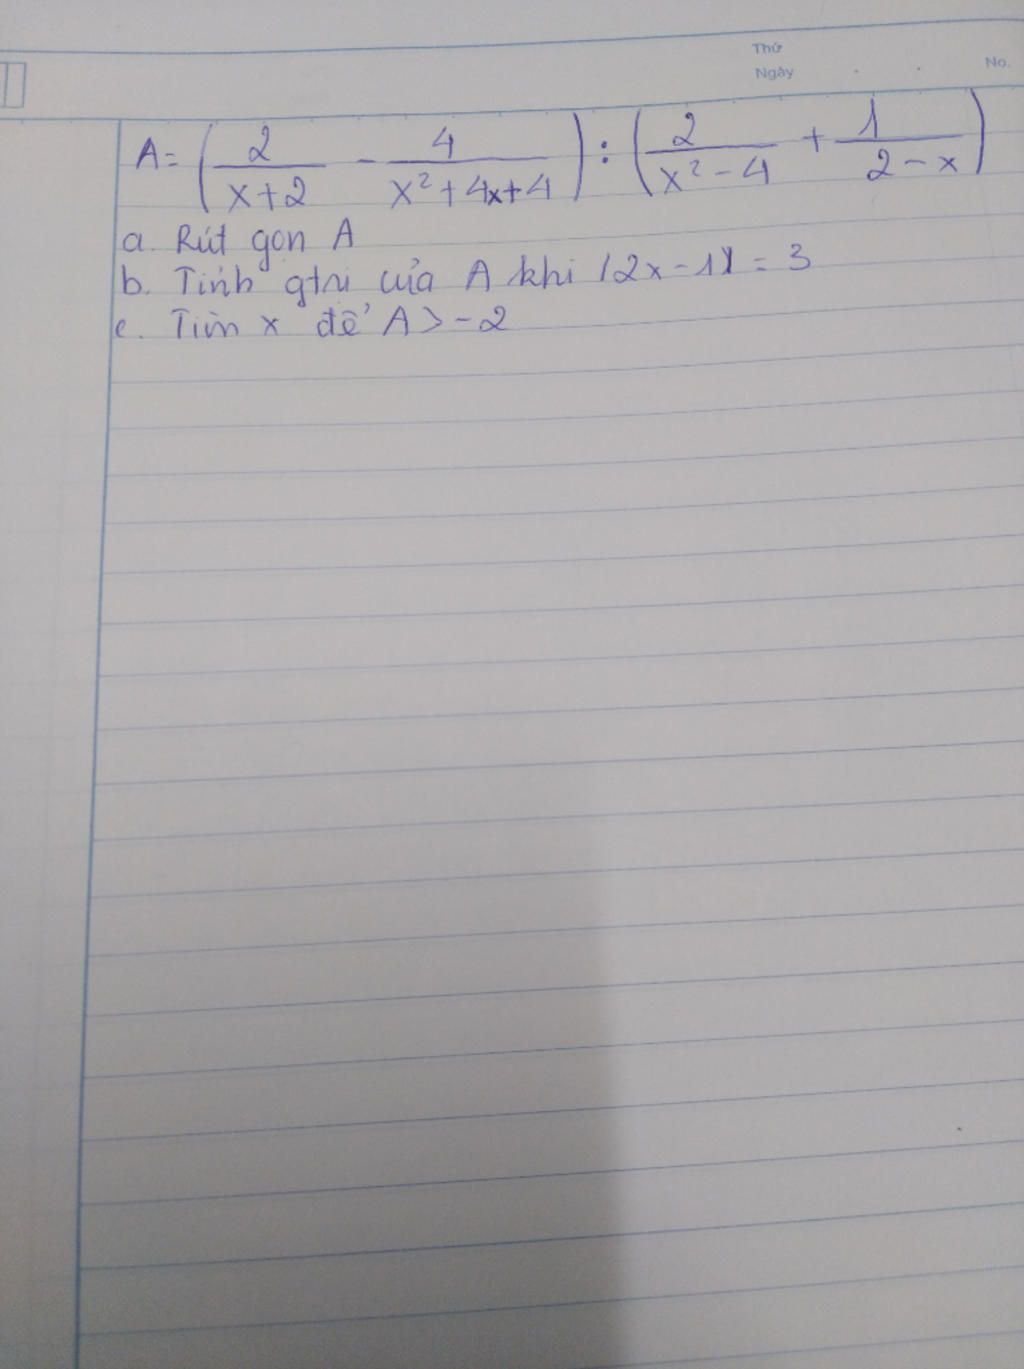 Thứ
Ngày No.
A = (2/(x+2) - 4/(x²+4x+4)) : (2/(x²-4) + 1/(2-x))
a. Rút gọn A
b. Tính gtrị của A khi |2x-1| = 3
c. Tìm x để A > -2